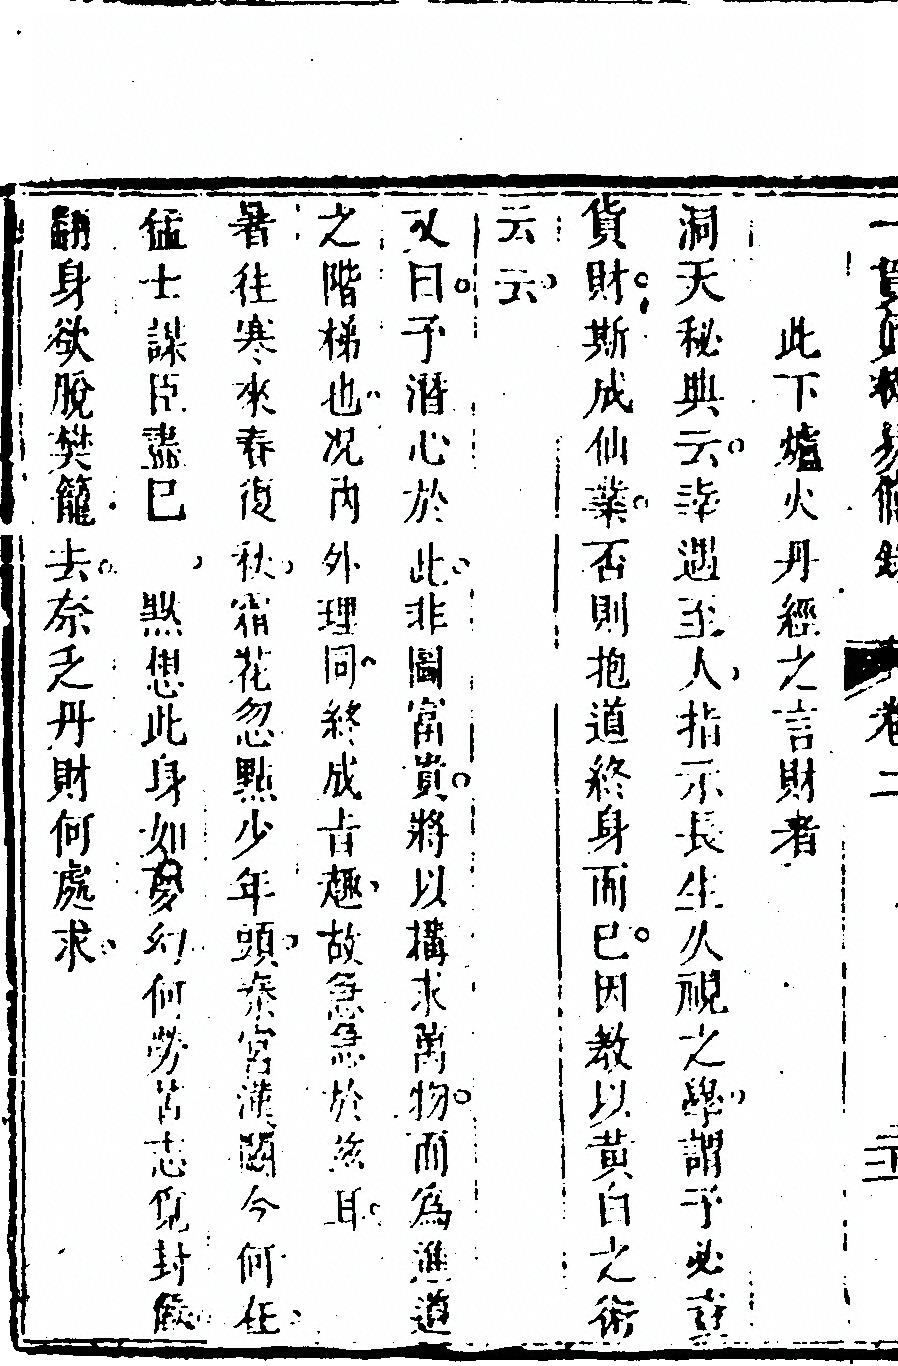 一貫真機易簡錄 卷二
此下爐火丹經之言財者
洞天秘典云幸遇至人指示長生久視之學謂予必藉
貨財斯成仙業否則抱道終身而已因教以黃白之術
云云
又曰予潛心於此非圖富貴將以搆求萬物而為進道
之階梯也况內外理同終成旨趣故急急於茲耳
暑往寒來春復秋霜花忽點少年頭秦宮漢闕今何在
猛士謀臣盡已 黙想此身如夢幻何勞苦志覓封侯
翻身欲脫樊籠去奈乏丹財何處求